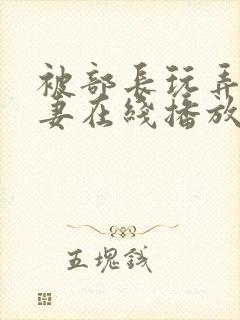 被部長玩弄
妻在綫播放
五塊錢